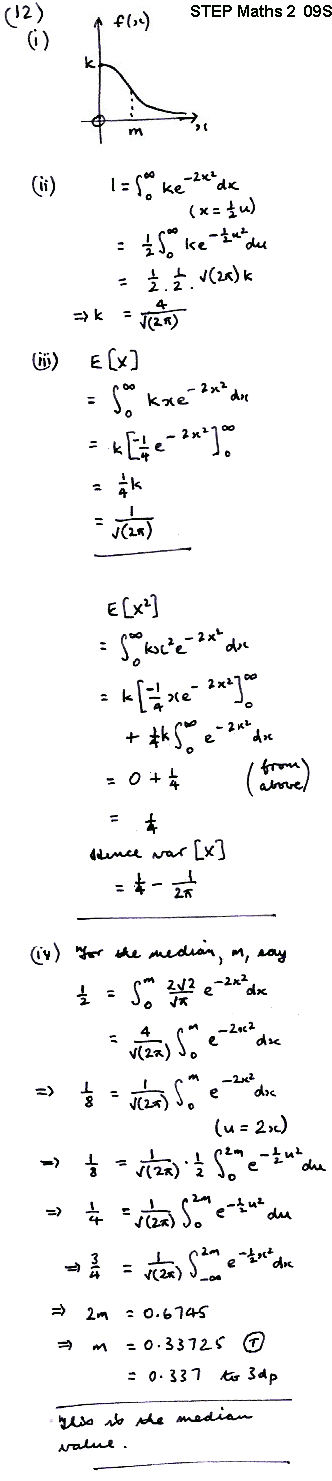 (12)
STEP Maths 2 09S
(i)
f(x)
k
m
x
(ii) 1 = ∫₀^∞ ke^{-2x²} dx
(x = ½u)
= ½ ∫₀^∞ ke^{-½u²} du
= ½ . ½ . √(2π) k
⇒ k = 4/√(2π)
(iii) E[X]
= ∫₀^∞ kxe^{-2x²} dx
= k[-¼ e^{-2x²}]₀^∞
= ¼k
= 1/√(2π)
E[X²]
= ∫₀^∞ kx²e^{-2x²} dx
= k[-¼ xe^{-2x²}]₀^∞
+ ¼k ∫₀^∞ e^{-2x²} dx
= 0 + ¼ (from above)
= ¼
Hence var [X]
= ¼ - 1/2π
(iv) For the median, m, say
½ = ∫₀^m 2√2/√π e^{-2x²} dx
= 4/√(2π) ∫₀^m e^{-2x²} dx
⇒ 1/8 = 1/√(2π) ∫₀^m e^{-2x²} dx
(u = 2x)
⇒ 1/8 = 1/√(2π) . ½ ∫₀^{2m} e^{-½u²} du
⇒ ¼ = 1/√(2π) ∫₀^{2m} e^{-½u²} du
⇒ ¾ = 1/√(2π) ∫_{-∞}^{2m} e^{-½x²} dx
⇒ 2m = 0.6745
⇒ m = 0.33725 Ⓣ
= 0.337 to 3dp
This is the median
value.